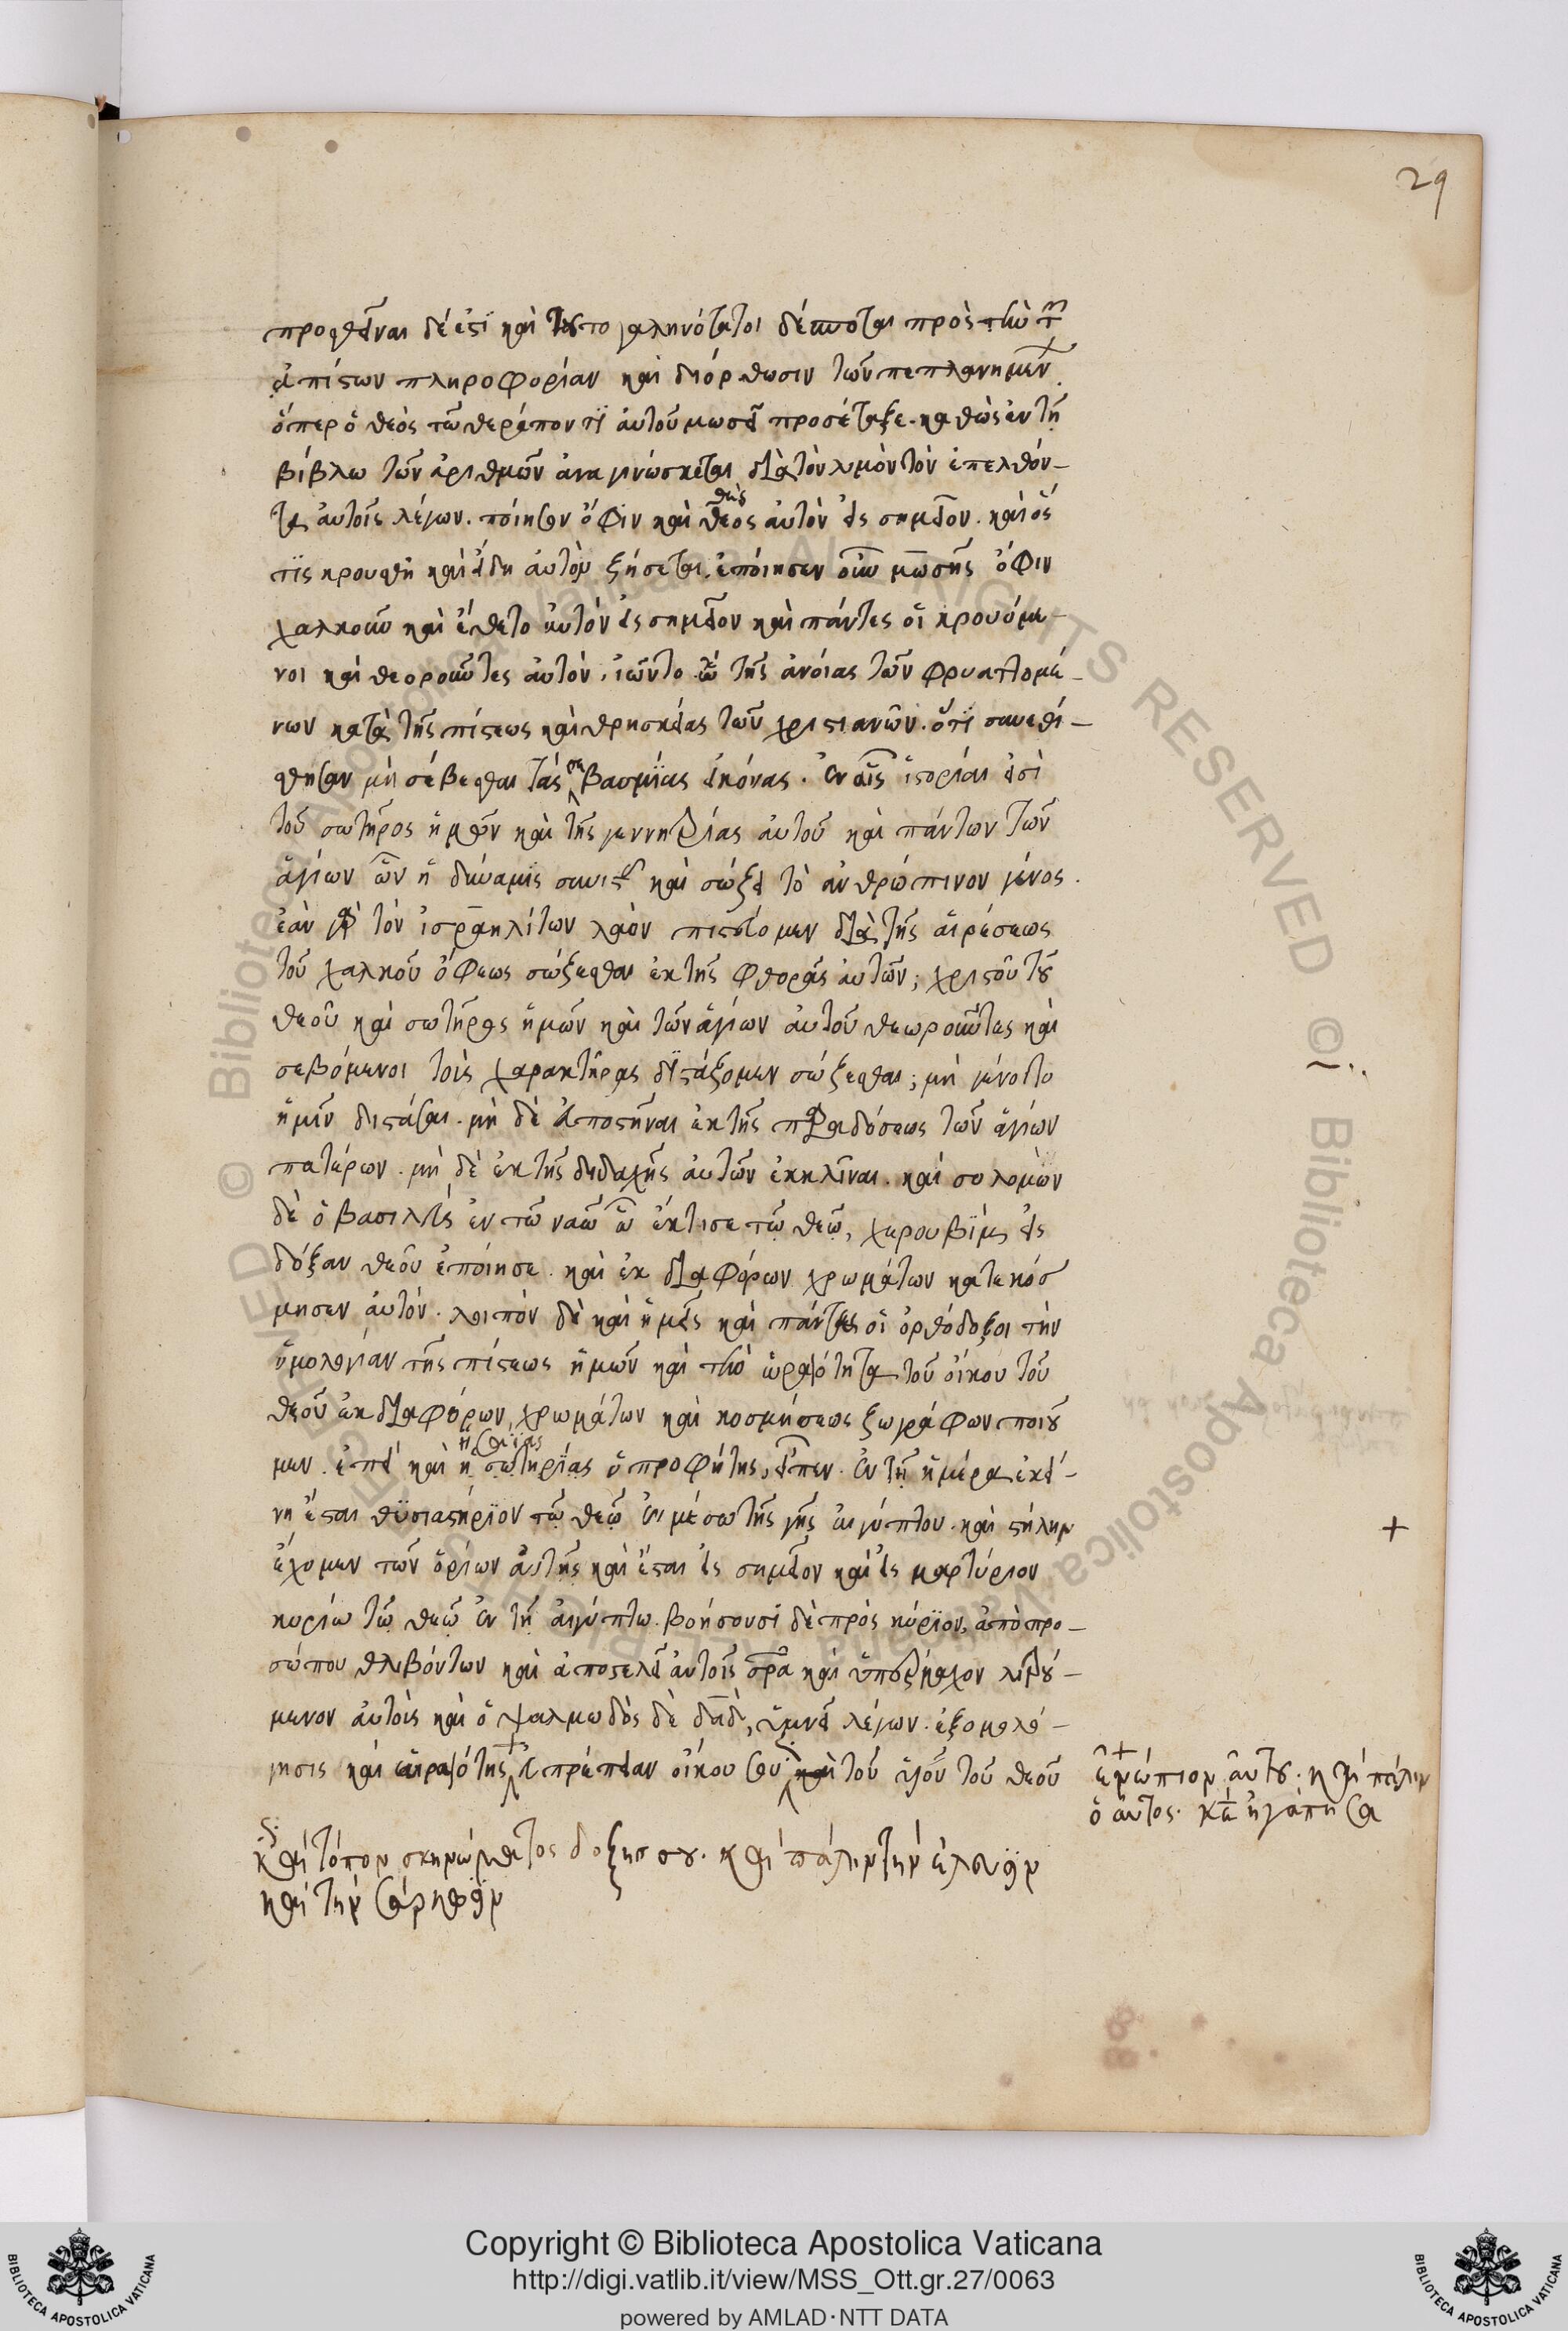 29
προσθεῖναι δέ ἐστι καὶ τοῦτο γαληνότατοι δέσποται πρὸς τὴν τῶν
ἀπίστων πληροφορίαν καὶ διόρθωσιν τῶν πεπλανημένων
ὅπερ ὁ θεὸς τῶ θεράποντι ἀυτοῦ μωσεῖ προσέταξε. καθὼς ἐν τῇ
βίβλω τῶν ἀριθμῶν ἀναγινώσκεται διὰ τὸν λιμὸν τὸν ἐπελθόν-
τα ἀυτοῖς λέγων. ποίησον ὄφιν καὶ θεὸς ἀυτὸν εἰς σημεῖον. καὶ ὅς
θὲς
τις κρουσθῆ καὶ εἴδη ἀυτὸν ζήσεται. ἐποίησεν οὖν μωσῆς ὄφιν
χαλκοῦν καὶ ἔθετο ἀυτὸν εἰς σημεῖον καὶ πάντες οἱ κρουόμε-
νοι καὶ θεοροῦντες ἀυτὸν, ἰῶντο. ὢ τῆς ἀνοίας τῶν φρυαττομέ-
νων κατὰ τῆς πίστεως καὶ θρησκείας τῶν χριστιανῶν. ὅτι συνεθί-
σθησαν μὴ σέβεσθαι τὰς σεβασμίας εἰκόνας. ἐν αἷς ἱστορίαι εἰσὶ
τοῦ σωτῆρος ἡμῶν καὶ τῆς γεννητρίας ἀυτοῦ καὶ πάντων τῶν
ἁγίων ὧν ἡ δύναμις συνιστᾶ καὶ σώζει τὸ ἀνθρώπινον γένος.
ἐὰν γὰρ τὸν ἰσραηλίτων λαὸν πιστεύομεν διὰ τῆς αἱρέσεως
τοῦ χαλκοῦ ὄφεως σώζεσθαι ἐκ τῆς φθορᾶς ἀυτῶν; χριστοῦ τοῦ
θεοῦ καὶ σωτῆρος ἡμῶν καὶ τῶν ἁγίων ἀυτοῦ θεωροῦντες καὶ
σεβόμενοι τοὺς χαρακτῆρας διστάζομεν σώζεσθαι; μὴ γένοιτο
ἡμῖν διστάσαι. μὴ δὲ ἀποστῆναι ἐκ τῆς παραδόσεως τῶν ἁγίων
πατέρων. μὴ δὲ ἐκ τῆς διδαχῆς ἀυτῶν ἐκκλῖναι. καὶ σολομὼν
δὲ ὁ βασιλεὺς ἐν τῶ ναῶ ὧ ἔκτισε τῶ θεῶ, χερουβὶμ εἰς
δόξαν θεοῦ ἐποίησε. καὶ ἐκ διαφόρων χρωμάτων κατεκόσ
μησεν ἀυτόν. λοιπὸν δὲ καὶ ἡμεῖς καὶ πάντες οἱ ὀρθόδοξοι τὴν
ὁμολογίαν τῆς πίστεως ἡμῶν καὶ τὴν ὡραιότητα τοῦ οἴκου τοῦ
θεοῦ ἐκ διαφόρων χρωμάτων καὶ κοσμήσεως ζωγράφων ποιοῦ
μεν. ἐπεὶ καὶ ἡ σωτηρίας ὁ προφήτης, εἶπεν. ἐν τῇ ἡμέρα ἐκεί-
ἡσαΐας
νη ἔσται θυσιαστήριον τῶ θεῶ ἐν μέσω τῆς γῆς αἰγύπτου. καὶ στήλην
ἔχομεν τῶν ὁρίων ἀυτῆς καὶ ἔσται εἰς σημεῖον καὶ εἰς μαρτύριον
κυρίω τῶ θεῶ ἐν τῇ αἰγύπτω. βοήσουσι δὲ πρὸς κύριον, ἀπὸ προ-
σώπου θλιβόντων καὶ ἀποστελεῖ ἀυτοῖς σρα καὶ λυτρού-
μενον ἀυτοὺς καὶ ὁ ψαλμωδὸς δὲ δαδ, ὑμνεῖ λέγων. ἐξομολό-
γησις καὶ ὡραιότης εὐπρέπειαν οἴκου σου καὶ τοῦ υἱοῦ τοῦ θεοῦ
+ ἐνώπιον αὐτοῦ. καὶ πάλιν
ὁ αὐτός. κε ἠγάπησα
καὶ τόπον σκηνώματος δόξης σου. καὶ πάλιν τὴν
καὶ τὴν
+
Copyright © Biblioteca Apostolica Vaticana
http://digi.vatlib.it/view/MSS_Ott.gr.27/0063
powered by AMLAD·NTT DATA
BIBLIOTECA APOSTOLICA VATICANA
BIBLIOTECA APOSTOLICA VATICANA